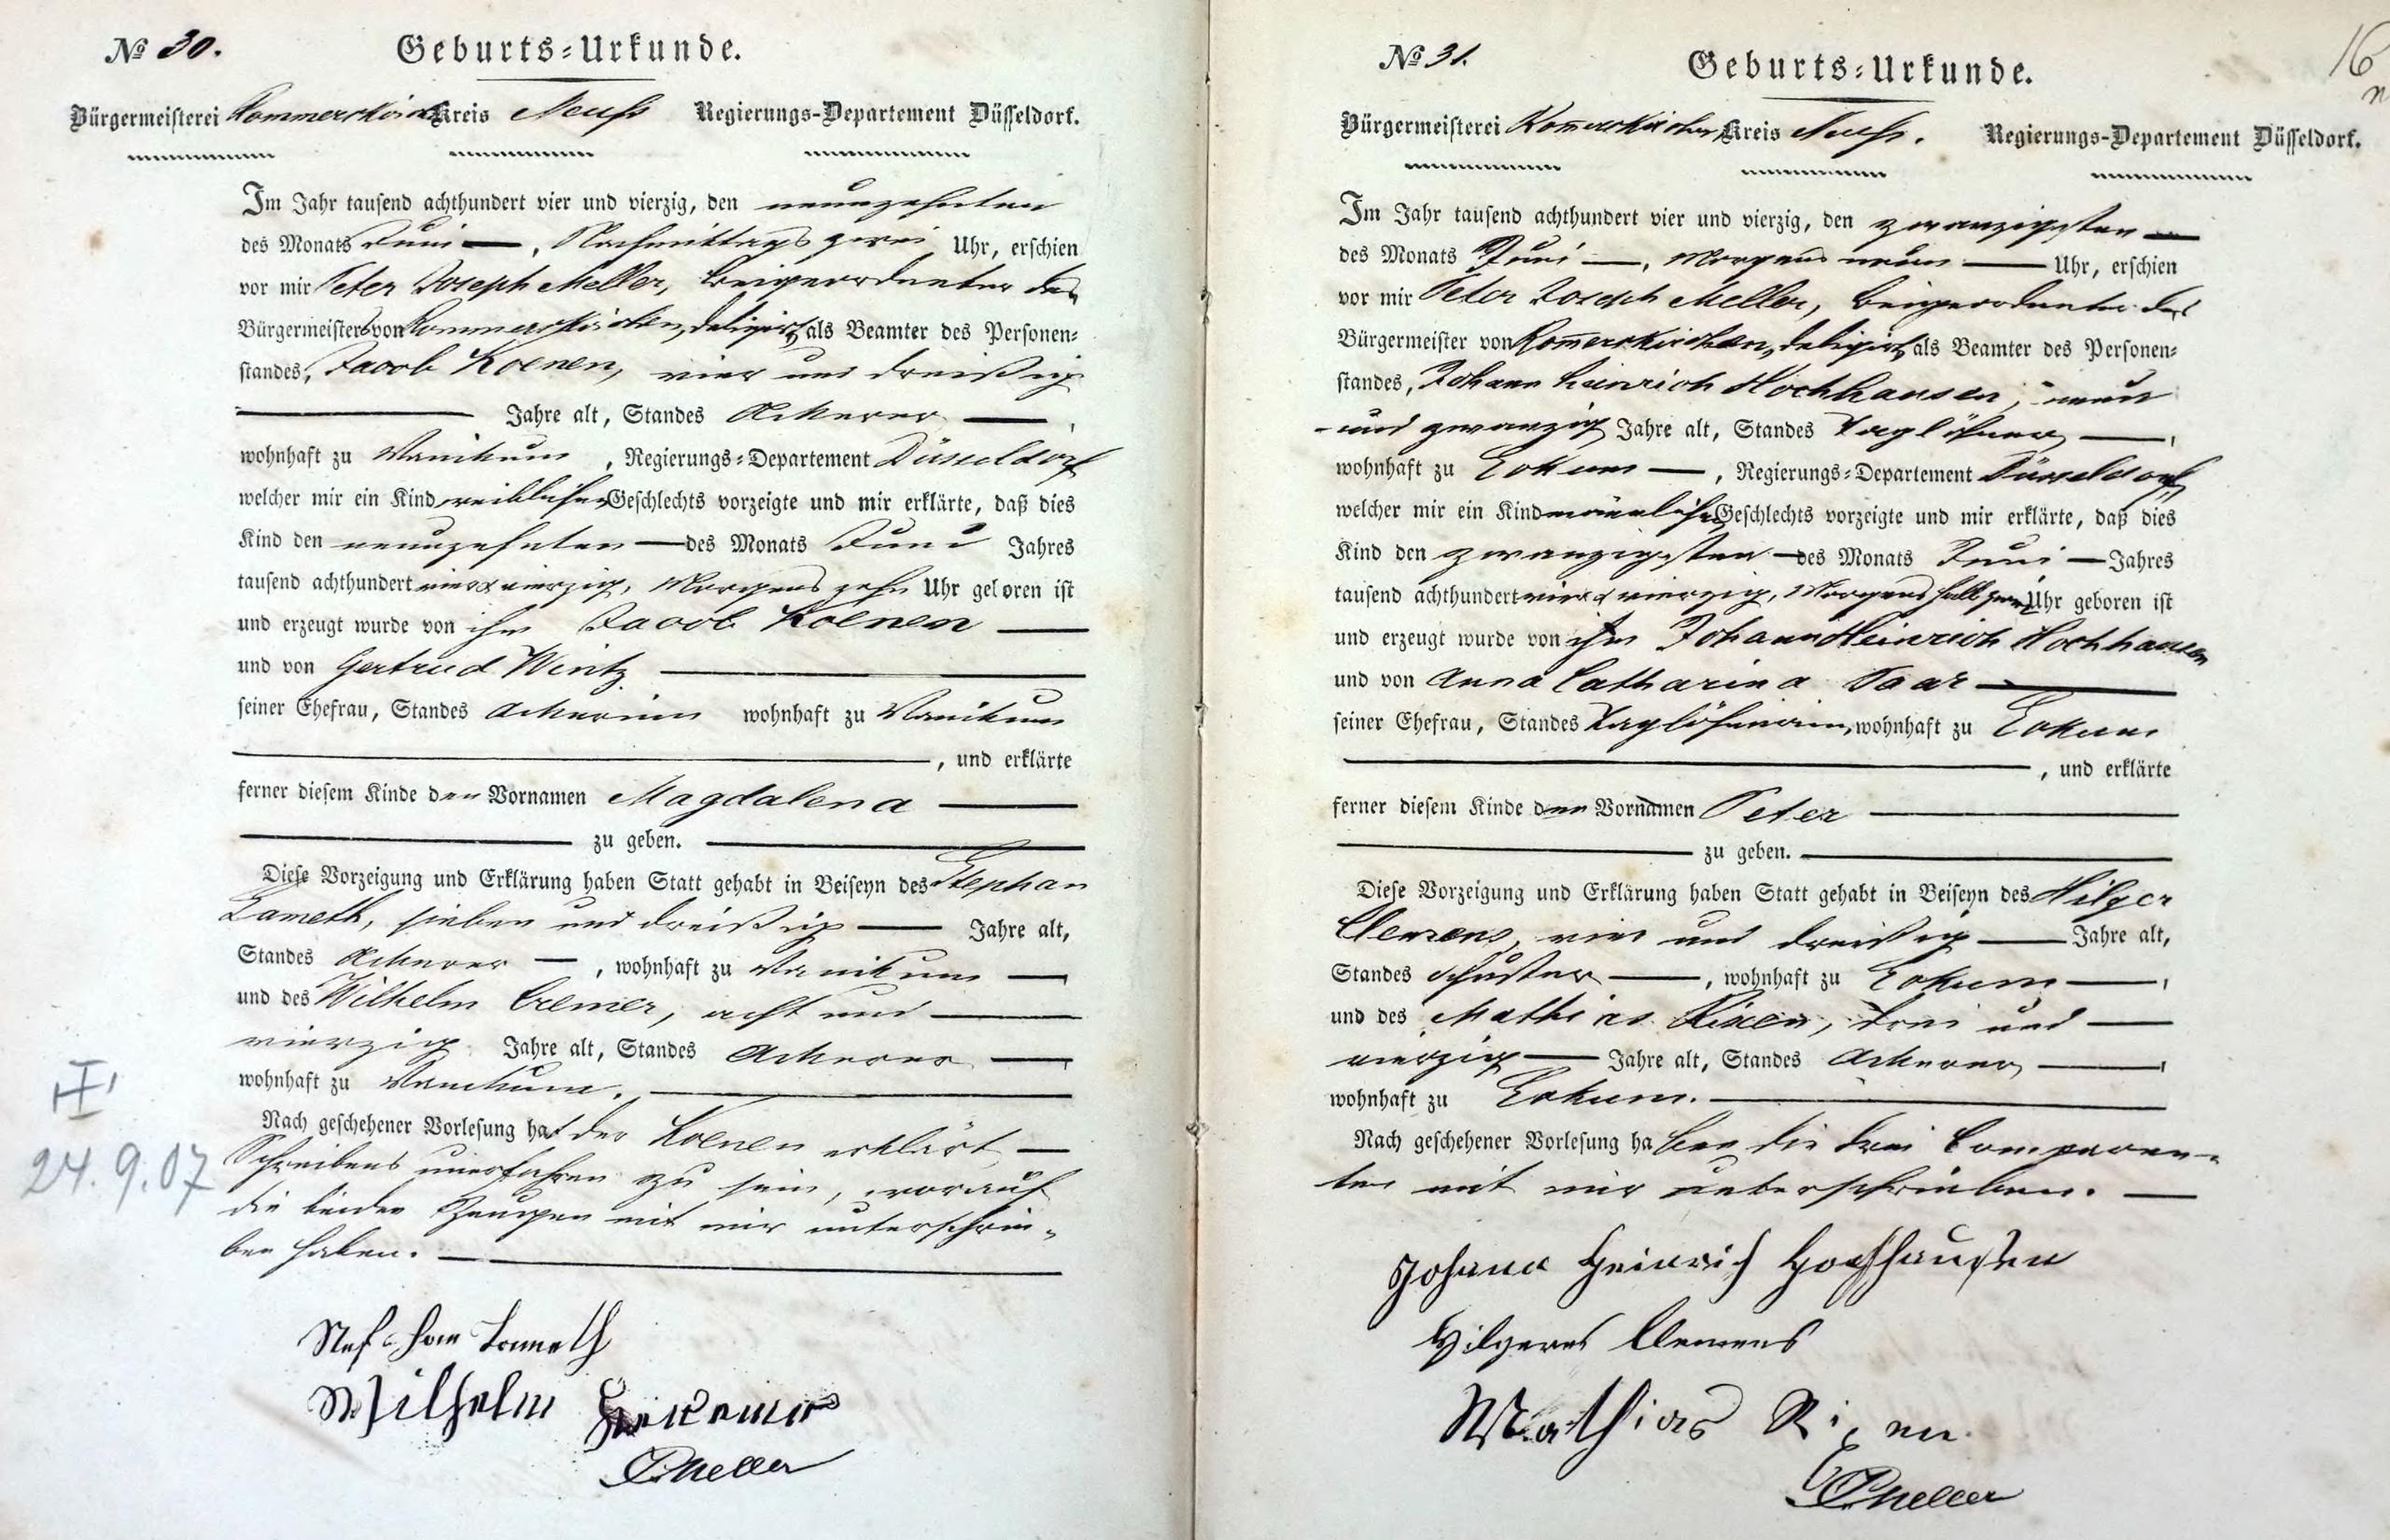 № 30.
Geburts-Urkunde.
Bürgermeisterei Rommerskirchen Kreis Neuß Regierungs-Departement Düsseldorf.
Im Jahr tausend achthundert vier und vierzig, den neunzehnten
des Monats Juni —, Nachmittags zwei Uhr, erschien
vor mir Peter Joseph Meller, Beigeordneter des
Bürgermeisters von Rommerskirchen, deligirt als Beamter des Personen-
standes, Jacob Koenen, vier und dreißig
— Jahre alt, Standes Ackerer —,
wohnhaft zu Vanikum, Regierungs-Departement Düsseldorf
welcher mir ein Kind weiblichen Geschlechts vorzeigte und mir erklärte, daß dies
Kind den neunzehnten — des Monats Juni Jahres
tausend achthundert vier & vierzig, Morgens zehn Uhr geboren ist
und erzeugt wurde von ihm Jacob Koenen —
und von Gertrud Wintz —
seiner Ehefrau, Standes Ackerinn wohnhaft zu Vanikum
—, und erklärte
ferner diesem Kinde den Vornamen Magdalena —
— zu geben. —
Diese Vorzeigung und Erklärung haben Statt gehabt in Beiseyn des Stephan
Lameth, sieben und dreißig — Jahre alt,
Standes Ackerer —, wohnhaft zu Vanikum —
und des Wilhelm Cremer, acht und —
vierzig Jahre alt, Standes Ackerer —,
wohnhaft zu Vanikum. —
Nach geschehener Vorlesung hat der Koenen erklärt —
Schreibens unerfahren zu sein, worauf
die beiden Zeugen mit mir unterschrie-
ben haben. —
Stephan Lameth
Wilhelm
PJMeller
II
24.9.07
№ 31.
16
Geburts-Urkunde.
Bürgermeisterei Rom̄erskirchen Kreis Neuß. Regierungs-Departement Düsseldorf.
Im Jahr tausend achthundert vier und vierzig, den zwanzigsten —
des Monats Juni —, Morgens neun — Uhr, erschien
vor mir Peter Joseph Meller, Beigeordneter des
Bürgermeister von Rom̄erskirchen, deligirt als Beamter des Personen-
standes, Johann Heinrich Hochhausen, neun
und zwanzig Jahre alt, Standes Taglöhner —,
wohnhaft zu Eckum —, Regierungs-Departement Düsseldorf,
welcher mir ein Kind mänlichen Geschlechts vorzeigte und mir erklärte, daß dies
Kind den zwanzigsten — des Monats Juni — Jahres
tausend achthundert vier & vierzig, Morgens halb zwei Uhr geboren ist
und erzeugt wurde von ihm Johann Heinrich Hochhausen
und von Anna Catharina Saar —
seiner Ehefrau, Standes Taglöhnerin, wohnhaft zu Eckum
—, und erklärte
ferner diesem Kinde den Vornamen Peter —
— zu geben. —
Diese Vorzeigung und Erklärung haben Statt gehabt in Beiseyn des Hilger
Clemens, vier und dreißig — Jahre alt,
Standes Schuster —, wohnhaft zu Eckum —,
und des Mathias Rixen, drei und —
vierzig — Jahre alt, Standes Ackerer —,
wohnhaft zu Eckum. —
Nach geschehener Vorlesung haben die drei Comparen-
ten mit mir unterschrieben. —
Johann Heinrich Hochhausen
Hilgerus Clemens
Mathias Rixen
PJMeller